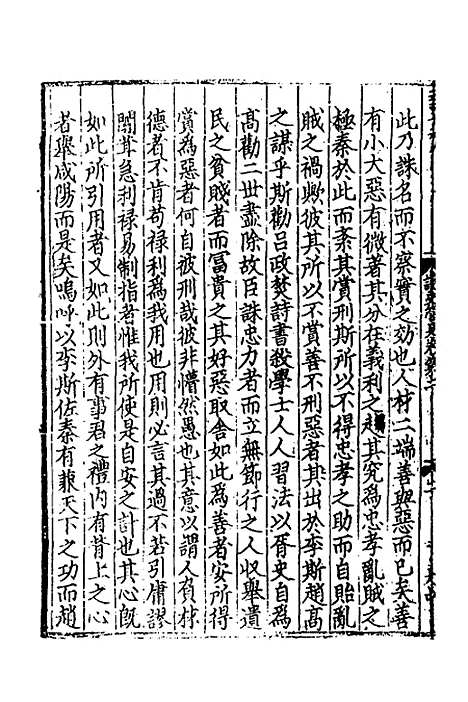 此乃誅名而不察實之効也人材二端善與惡而已矣善
有小大惡有微著其分在義利之趨其究為忠孝亂賊之
極秦於此而紊其賞刑斯所以不得忠孝之助而自貽亂
賊之禍歟彼其所以不賞善不刑惡者其出於李斯趙高
之謀乎斯勸呂政焚詩書殺學士人人習法以吏自為
高勸二世盡除故臣誅忠力者而立無節行之人收舉遺
民之貧賤者而富貴之其好惡取舍如此為善者安所得
賞為惡者何自被刑哉彼非懵然愚也其意以謂人負材
德者不肯苟祿利為我用也用則必言其過不若引庸謬
闒茸急利祿易制指者惟我所使是自安之計也其心旣
如此所引用者又如此則外有事君之禮內有背上之心
者舉咸陽而是矣嗚呼以李斯佐秦有兼天下之功而趙